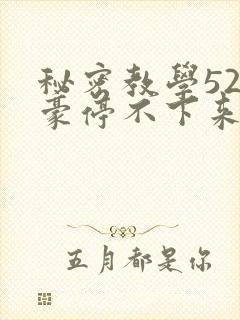 秘密教學52
豪停不下来
五月都是你